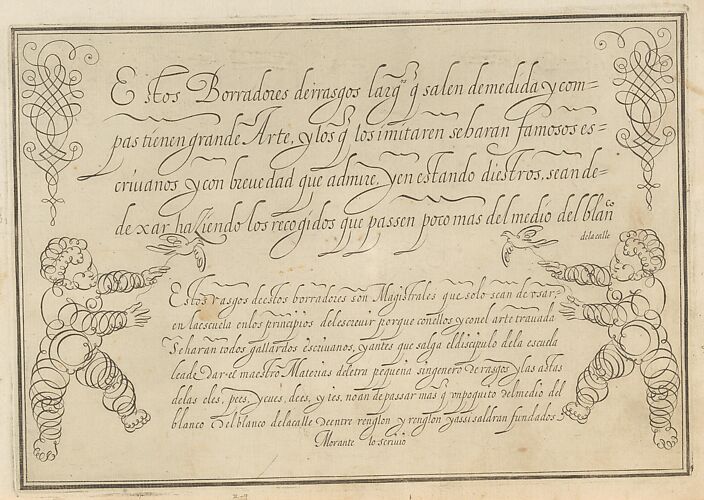 Estos Borradores derrasgos largs q salen demedida y com=
pas tienen grande Arte, y los q los imitaren se haran famosos es-
criuanos y con breuedad que admire, y en estando diestros, se an de-
dexar haziendo los recogidos que passen poco mas del medio del blanco
de la calle
Estos rasgos deestos borradores son Magistrales que solo se an de vsar
en la escuela en los principios del escreuir porque con ellos y con el arte trauada
Se haran todos gallardos escriuanos, y antes que salga el discipulo de la escuela
le a de dar el maestro Materias de letra pequeña sin genero de rasgos y las astas
de las eles, pees, y cues, dees, y tes, no an de passar mas q vn poquito del medio del
blanco Del blanco de la calle De entre renglon y renglon y assi saldran fundados
Morante lo scriuio